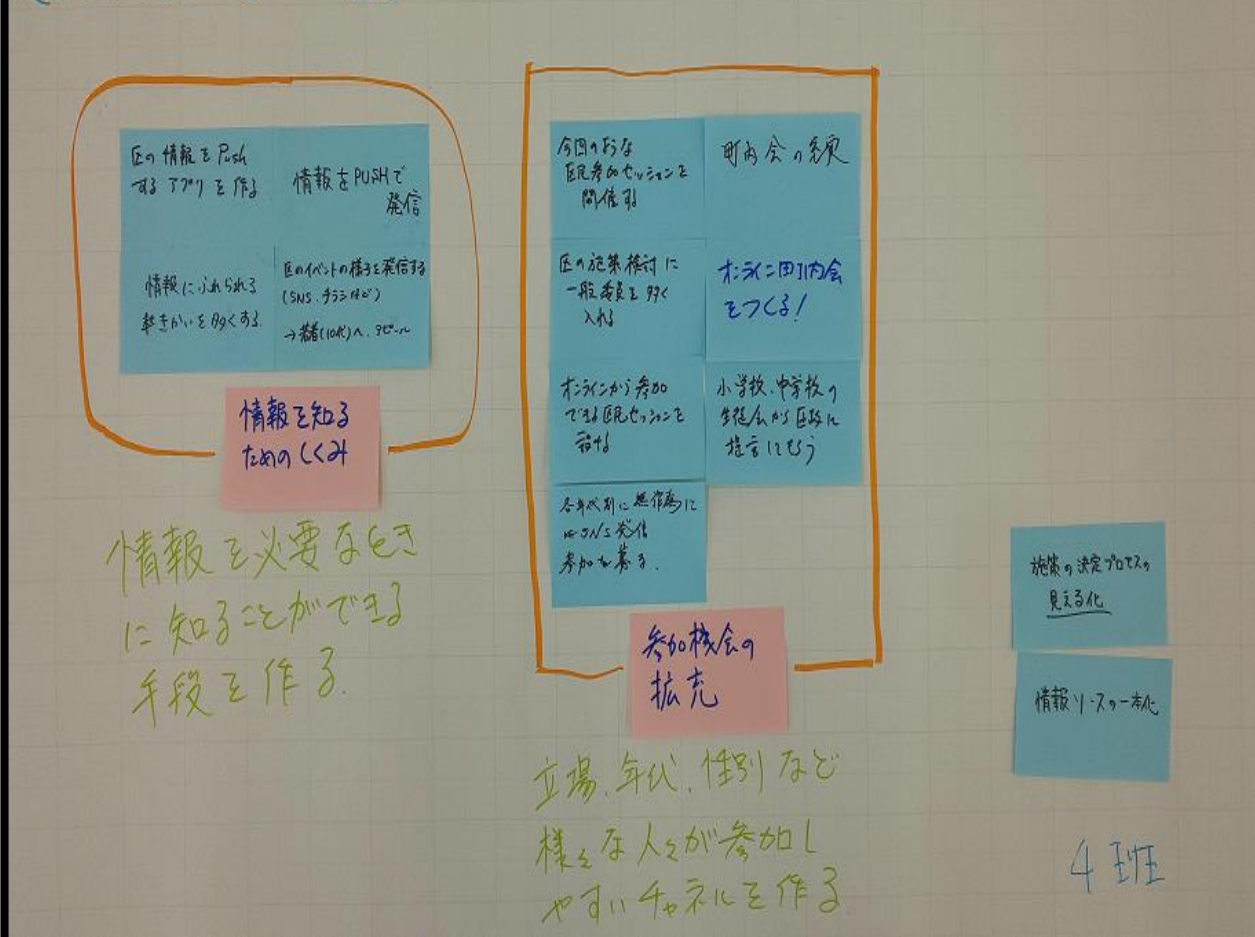 区の情報をPush
するアプリを作る
情報をPUSHで
発信
情報にふれられる
きかいを多くする
区のイベントの様子を発信する
(SNS、チラシなど)
→若者(10代)へ、アピール
情報を知る
ためのしくみ
情報を必要なとき
に知ることができる
手段を作る
今回のような
区民参加セッションを
開催する
町内会の充実
区の施策検討に
一般委員を多く
入れる
オンライン町内会
をつくる!
オンラインから参加
できる区民セッションを
設ける
小学校、中学校の
生徒会から区政に
提言してもらう
各年代別に無作為に
SNS発信
参加を募る.
参加機会の
拡充
立場、年代、性別など
様々な人々が参加し
やすいチャネルを作る
施策の決定プロセスの
見える化
情報ソースの一本化
4班